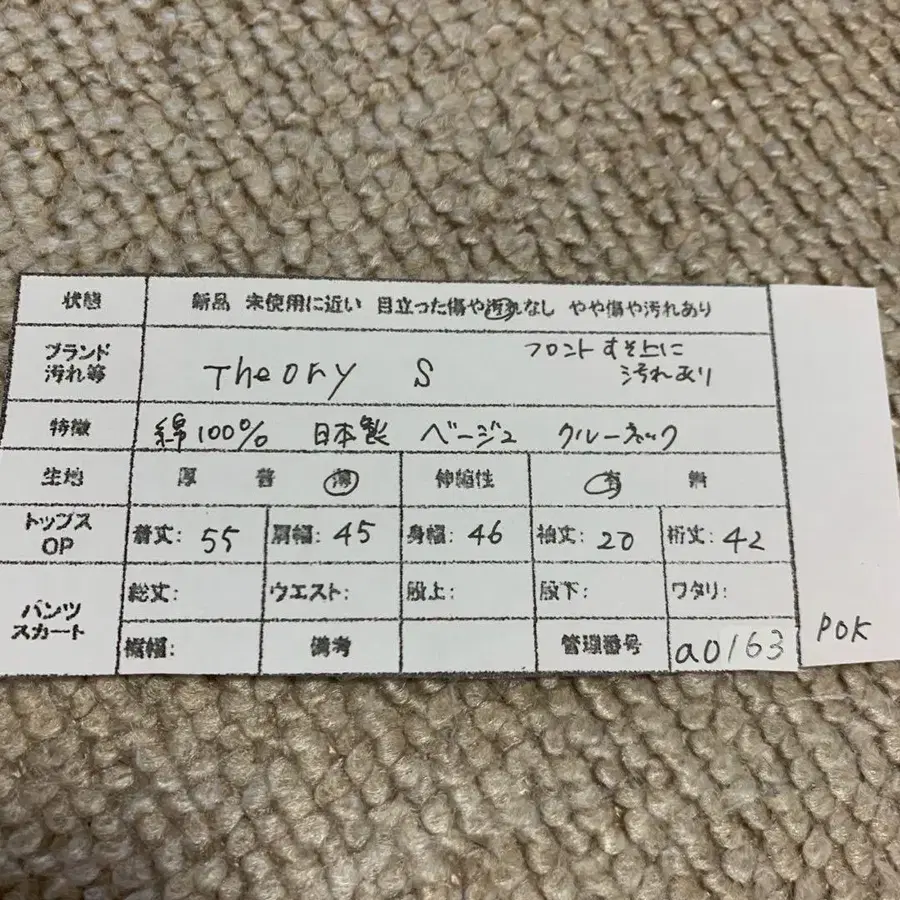 状態 新品 未使用に近い 目立った傷や汚れなし やや傷や汚れあり
ブランド
汚れ等
Theory S
フロントすそ上に
汚れあり
特徴 綿100% 日本製 ベージュ クルーネック
生地 厚 普 薄 伸縮性 有 無
トップス
OP
着丈: 55 肩幅: 45 身幅: 46 袖丈: 20 裄丈: 42
パンツ
スカート
総丈: ウエスト: 股上: 股下: ワタリ:
裾幅: 備考 管理番号 a0163
POK